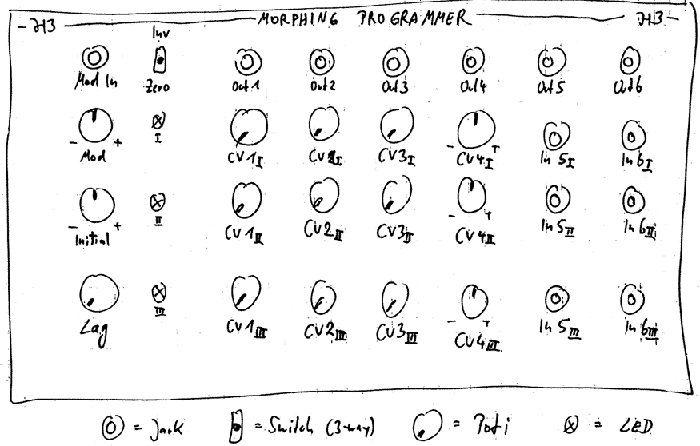 JH3 MORPHING PROGRAMMER JH3
Inv
Mod In Zero Out1 Out2 Out3 Out4 Out5 Out6
I
- Mod + CV1I CV2I CV3I - CV4I + In 5I In 6I
II
- Initial + CV1II CV2II CV3II - CV4II + In 5II In 6II
III
Lag CV1III CV2III CV3III - CV4III + In 5III In 6III
= Jack = Switch (3-way) = Poti = LED